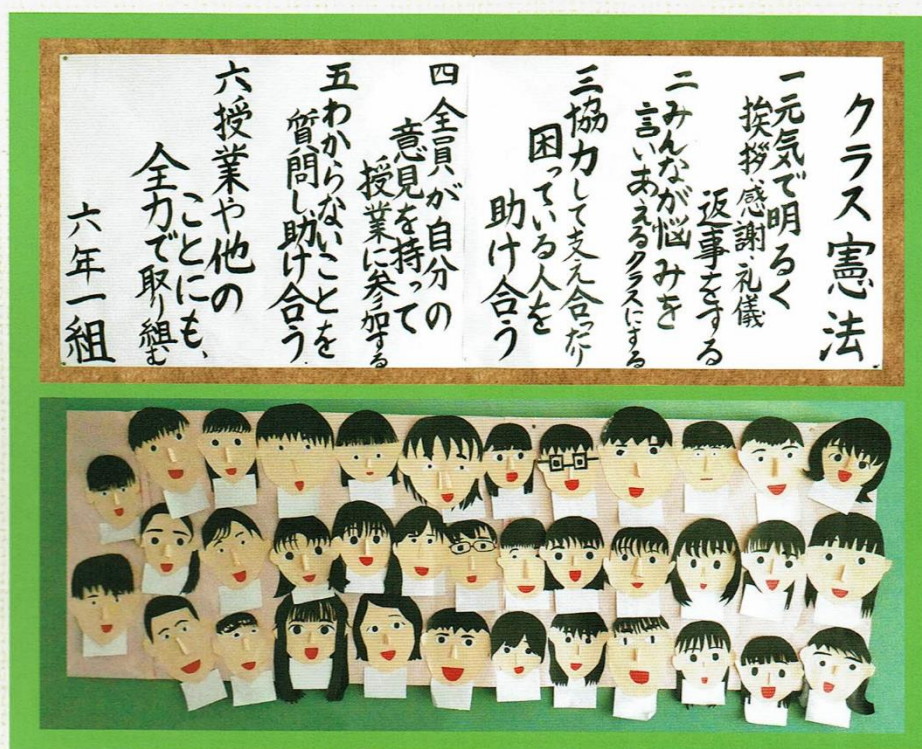 クラス憲法
一元気で明るく
挨拶・感謝・礼儀
返事をする
二みんなが悩みを
言いあえるクラスにする
三協力して支え合ったり
困っている人を
助け合う
四全員が自分の
意見を持って
授業に参加する
五わからないことを
質問し助け合う
六授業や他の
ことにも、
全力で取り組む
六年一組